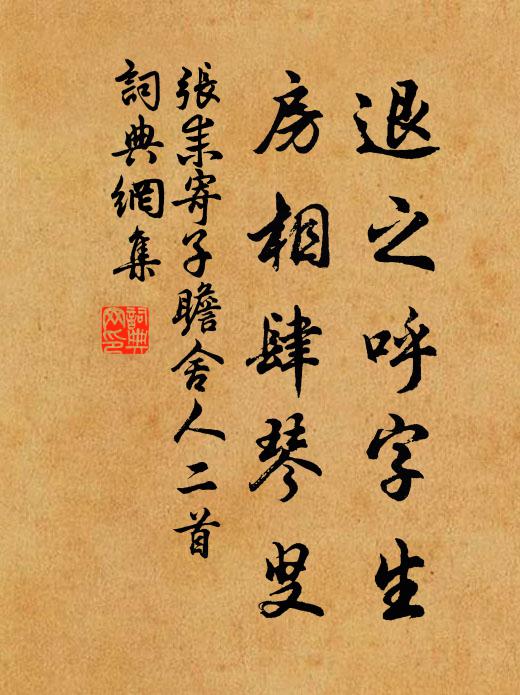 退之呼字生
房相肆琴叟
張耒寄子瞻舍人二首
詞典網集
詞典網印